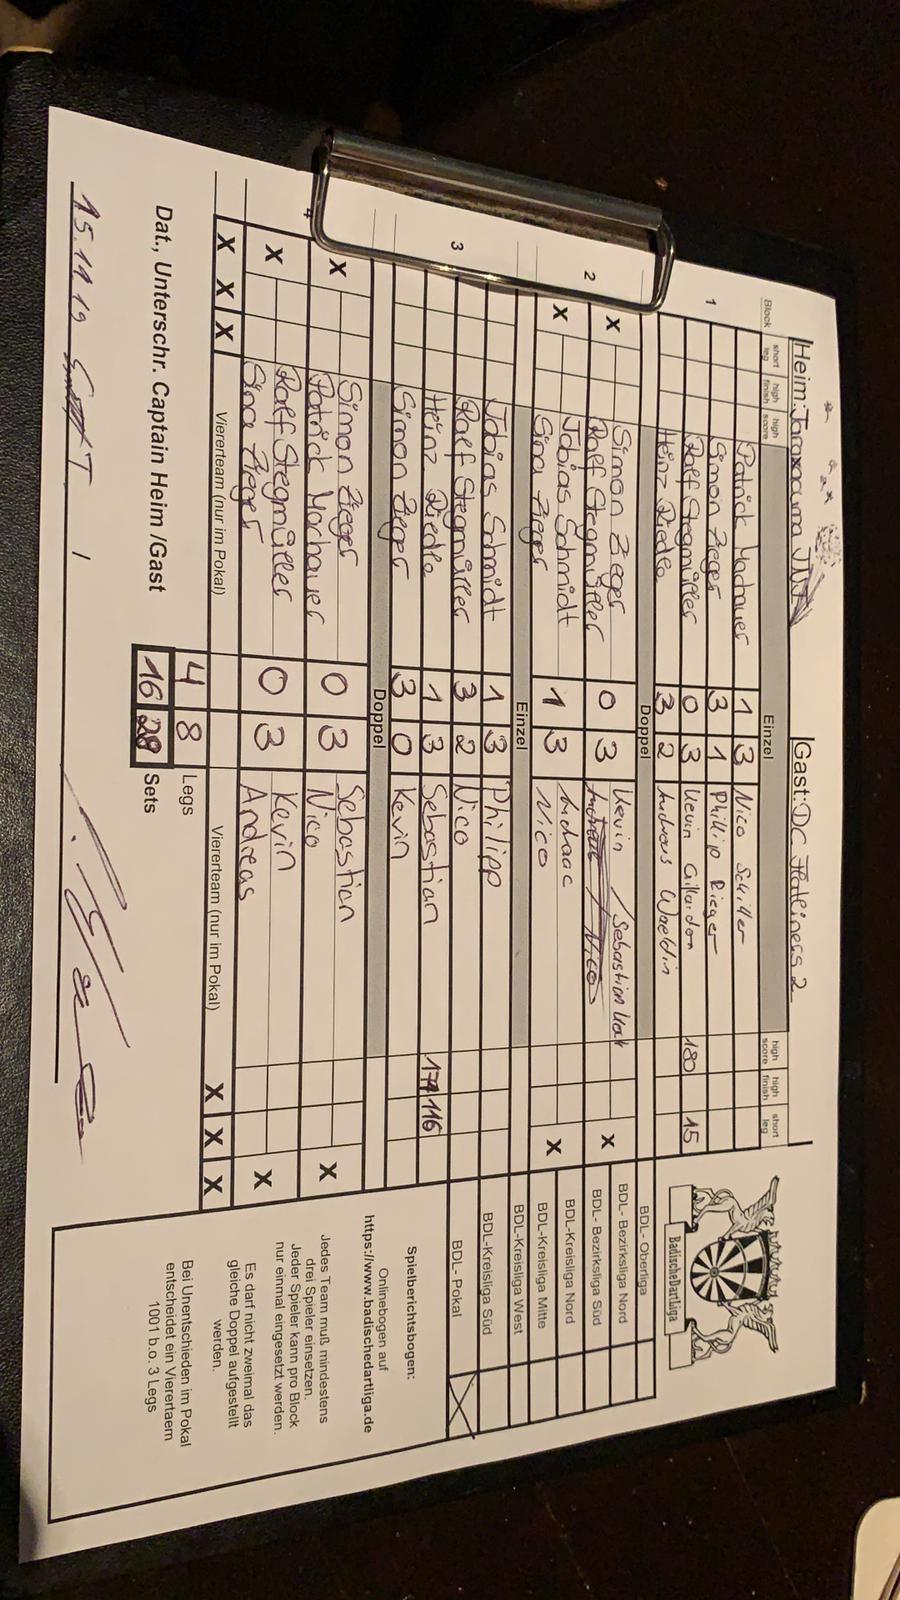 Heim: Gast: DC Flatliners 2
Block short leg high finish high score Einzel high score high finish short leg
1
Patrick Machauer 1 3 Nico Schiller
Simon Zieger 3 1 Phillip Rieger
Ralf Stegmüller 0 3 Kevin Gillardon 180 15
Heinz Riedle 3 2 Andreas Waeldin
Doppel
2
X Simon Zieger 0 3 Kevin / Sebastian X
Ralf Stegmüller
X Tobias Schmidt 1 3 X
Sina Zieger Nico
Einzel
3
Tobias Schmidt 1 3 Philipp
Ralf Stegmüller 3 2 Nico
Heinz Riedle 1 3 Sebastian 116
Simon Zieger 3 0 Kevin
Doppel
4
X Simon Zieger 0 3 Sebastian X
Patrick Machauer Nico
X Ralf Stegmüller 0 3 Kevin X
Sina Zieger Andreas
X X X Viererteam (nur im Pokal) Viererteam (nur im Pokal) X X X
4 8 Legs
Dat., Unterschr. Captain Heim /Gast 16 28 Sets
15.11.19 /
BadischeDartLiga
BDL- Oberliga
BDL- Bezirksliga Nord
BDL- Bezirksliga Süd
BDL-Kreisliga Nord
BDL-Kreisliga Mitte
BDL-Kreisliga West
BDL-Kreisliga Süd
BDL- Pokal X
Spielberichtsbogen:
Onlinebogen auf
https://www.badischedartliga.de
Jedes Team muß mindestens
drei Spieler einsetzen.
Jeder Spieler kann pro Block
nur einmal eingesetzt werden.
Es darf nicht zweimal das
gleiche Doppel aufgestellt
werden.
Bei Unentschieden im Pokal
entscheidet ein Vierertaem
1001 b.o. 3 Legs